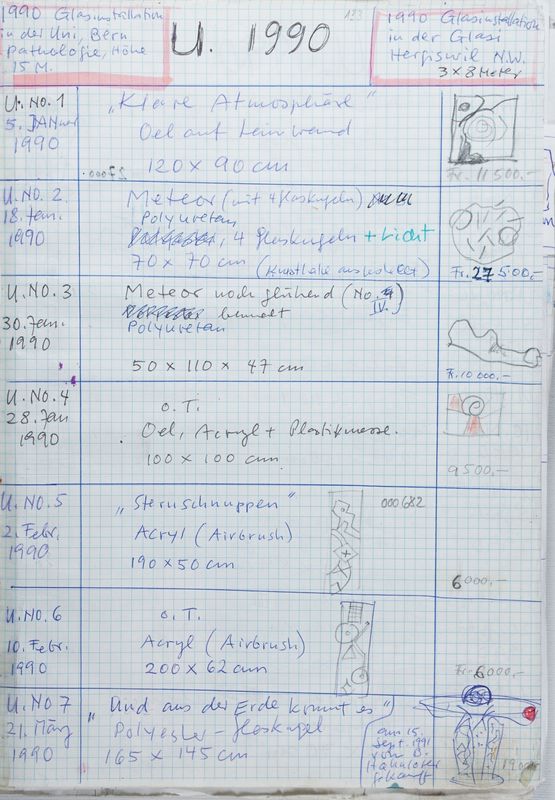 1990 Glasinstallation
in der Uni, Bern
pathologie, Höhe
15 M.
U. 1990
123
1990 Glasinstallation
in der Glasi
Hergiswil N.W.
3 x 8 Meter
U. No. 1
5. JANuar
1990
„Klare Atmosphäre"
Oel auf Leinwand
120 x 90 cm
Fr. 11 500.-
U. NO. 2.
18. Jan.
1990
Meteor (mit 4 Glaskugeln)
Polyuretan
, 4 Glaskugeln + Licht
70 x 70 cm (Kunsthalle
Fr. 27 500.-
U. NO. 3
30. Jan.
1990
Meteor noch glühend (No. 4
IV.)
bemalt
Polyuretan
50 x 110 x 47 cm
Fr. 10 000.-
U. NO. 4
28. Jan
1990
o. T.
Oel, Acryl + Plastikmasse.
100 x 100 cm
9 500.-
U. NO. 5
2. Febr.
1990
„Sternschnuppen"
Acryl (Airbrush)
190 x 50 cm
000682
6000.-
U. NO. 6
10. Febr.
1990
o. T.
Acryl (Airbrush)
200 x 62 cm
Fr. 6000.-
U. NO 7
21. März
1990
„Und aus der Erde kommt es"
Polyester - Glaskugel
165 x 145 cm
am 15.
Sept. 1991
von B.
gekauft